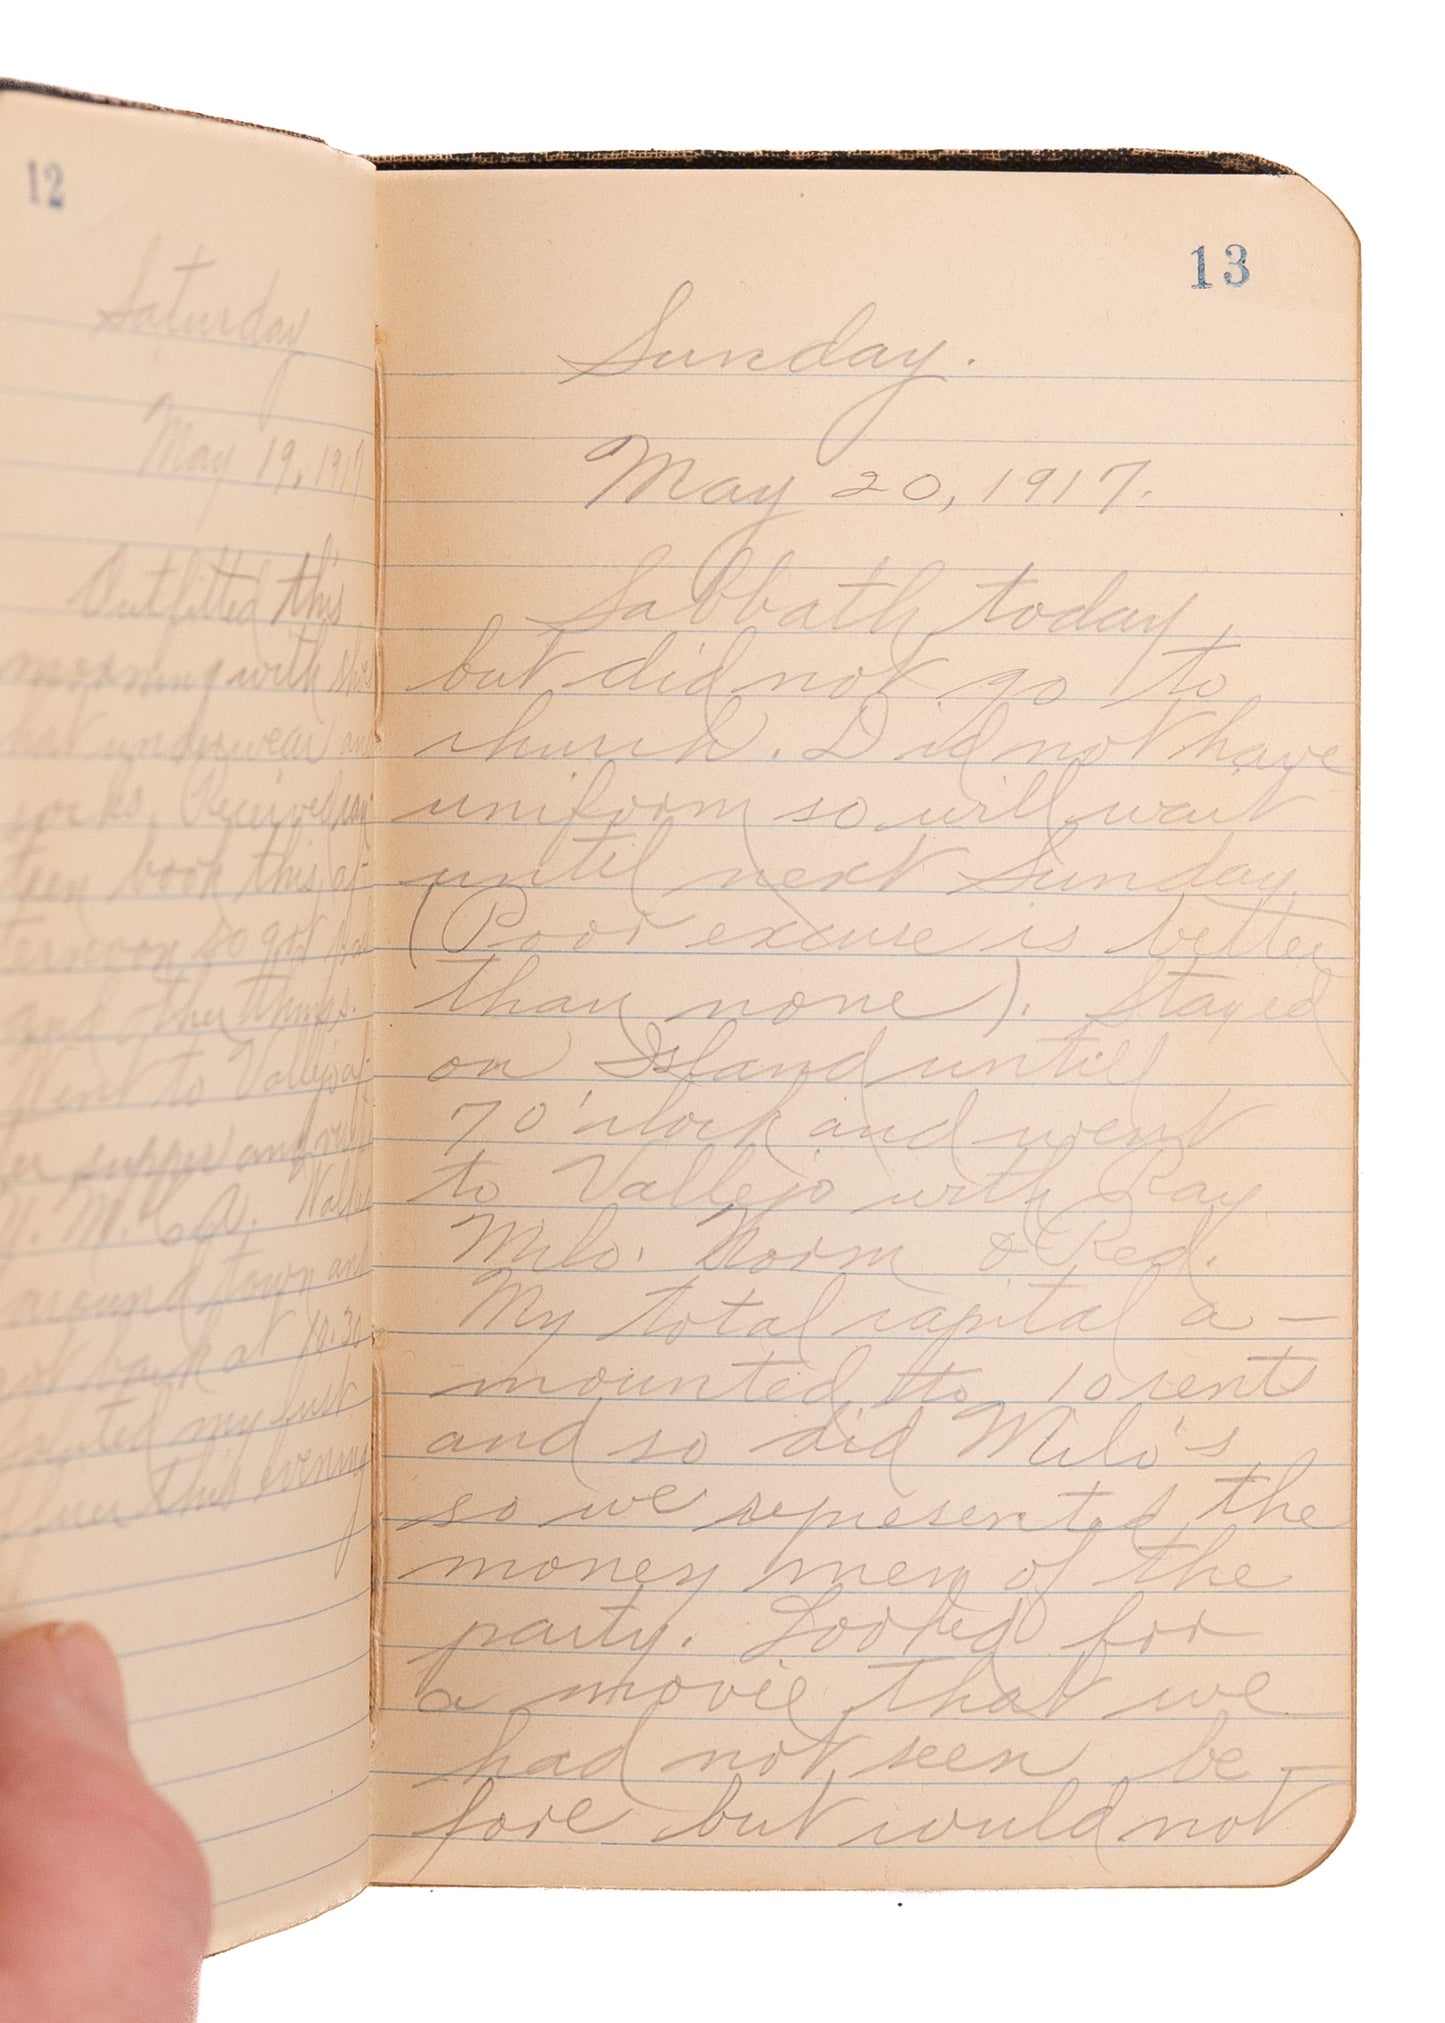 12
Saturday
May 19, 1917
Outfitted this
morning with
hat underwear
socks. Received
teen book this af-
ternoon so got
and other things.
Went to Vallejo
supper and
Y. M. C. A.
around town and
got back at 10.30
my first
this evening
13
Sunday.
May 20, 1917.
Sabbath today,
but did not go to
church. Did not have
uniform so will wait
until next Sunday
(Poor excuse is better
than none). Stayed
on Island untill
7 O'clock and went
to Vallejo with Ray
Milo. Norm & Red.
My total capital a-
mounted to 10 cents
and so did Milo's
so we represented the
money men of the
party. Looked for
a movie that we
had not seen be-
fore but would not